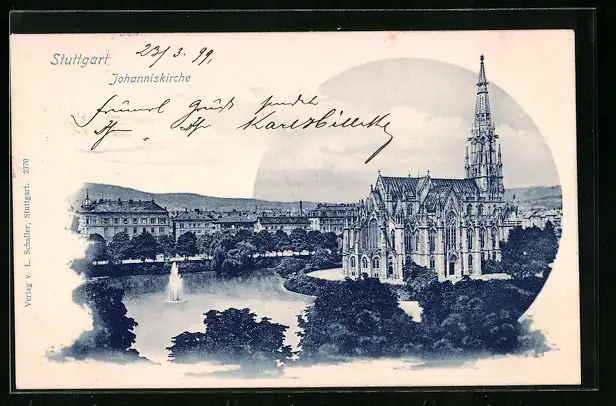 Stuttgart
Johanniskirche
23/3.99,
Gruß sendet
Karl
Verlag v. L. Schaller, Stuttgart. 2370